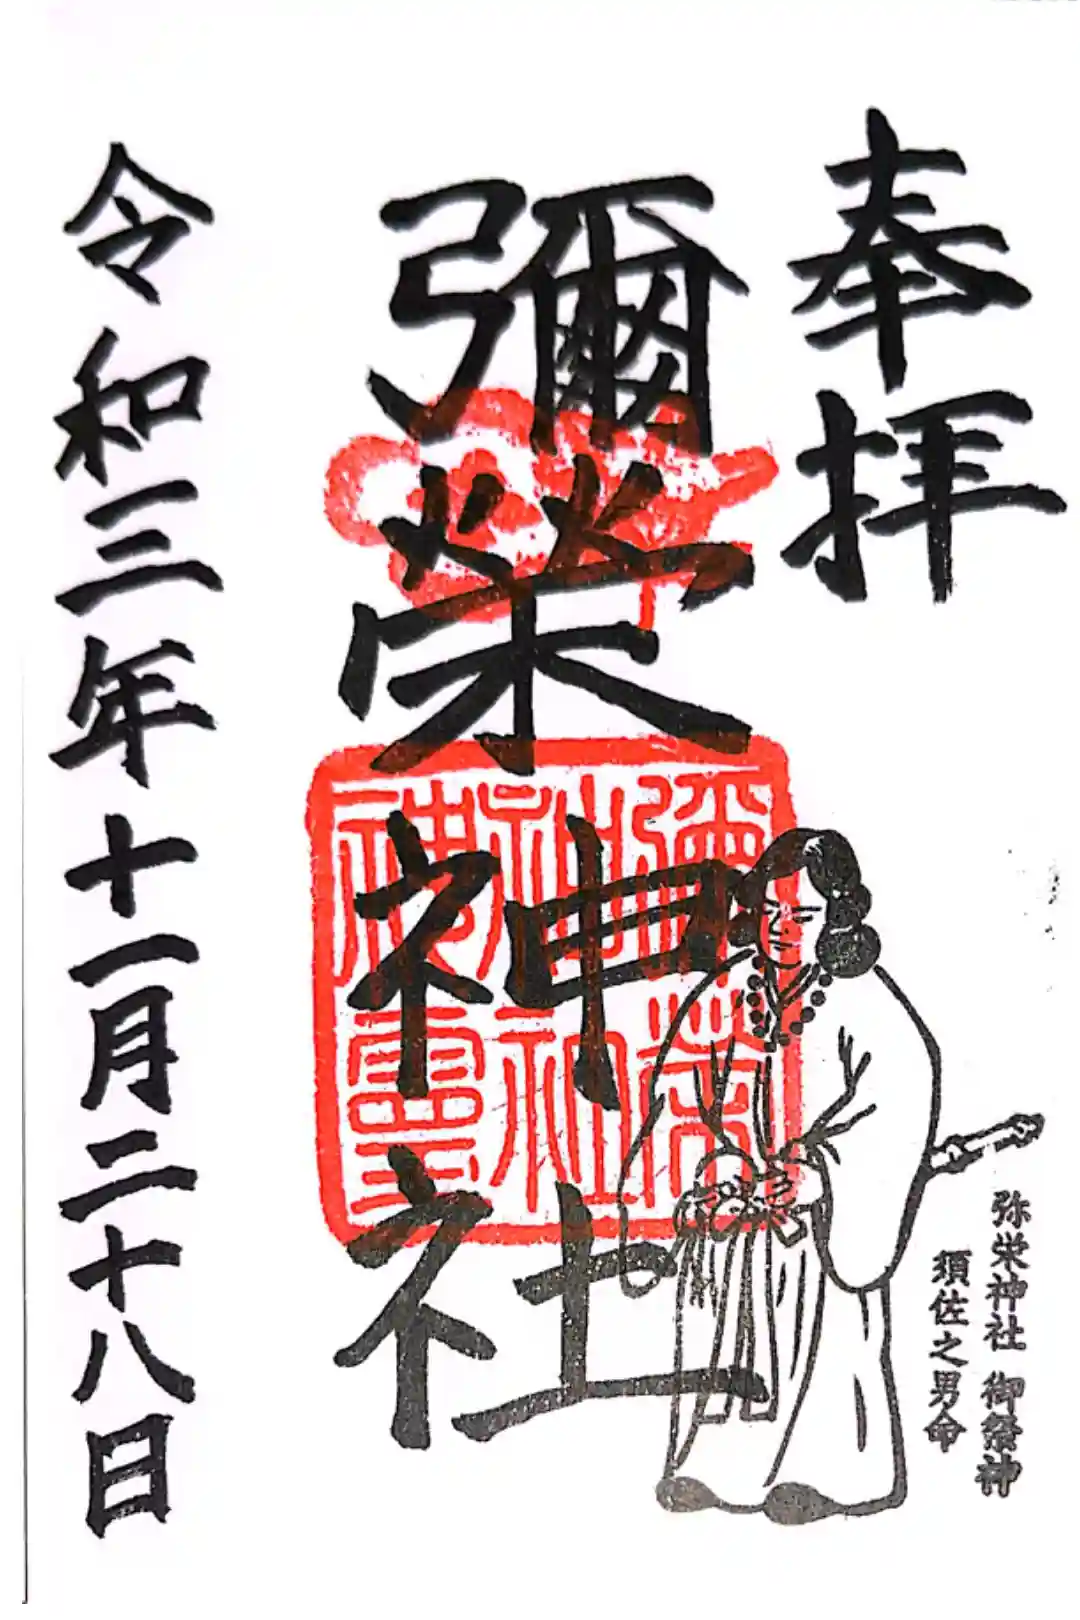 奉拝
彌榮神社
彌榮
神社
神霊
弥栄神社 御祭神
須佐之男命
令和三年十一月二十八日